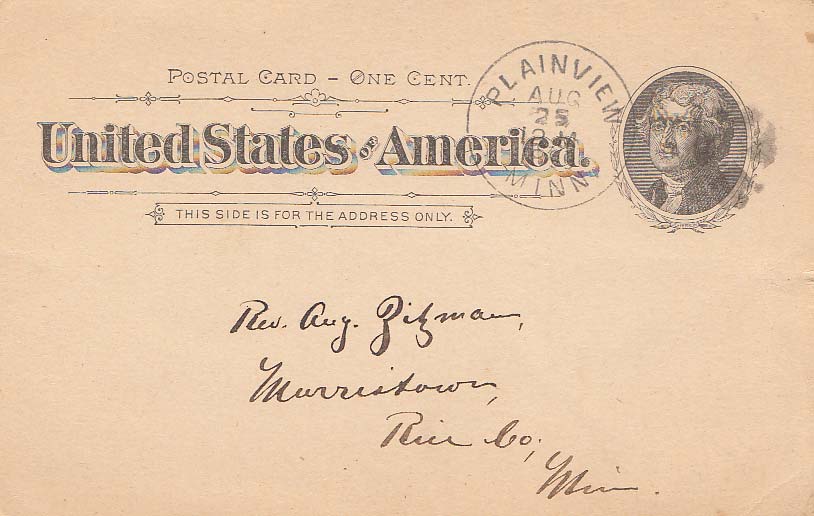 POSTAL CARD - ONE CENT.
United States OF America.
THIS SIDE IS FOR THE ADDRESS ONLY.
PLAINVIEW
AUG
25
MINN
Rev. Aug. Zitzman,
Morristown,
Rice Co,
Minn.